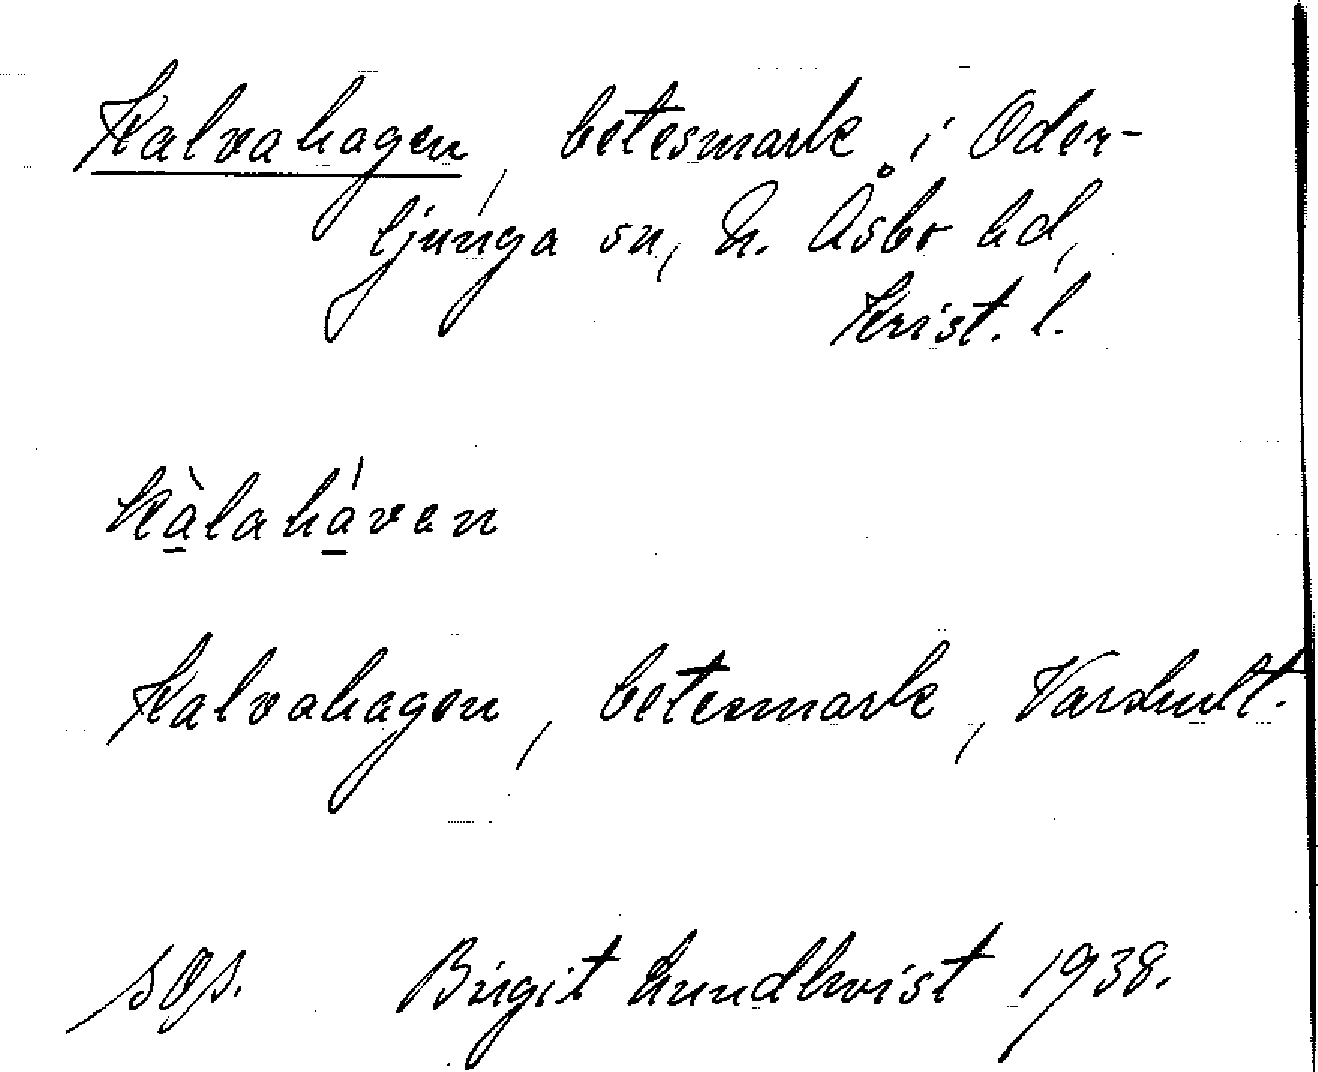 Kalvahagen, betesmark i Oder-
ljunga sn, N. Åsbo hd,
Krist. l.
kàlahá̱ven
Kalvahagen, betesmark, Varshult.
Birgit Lundkvist 1938.